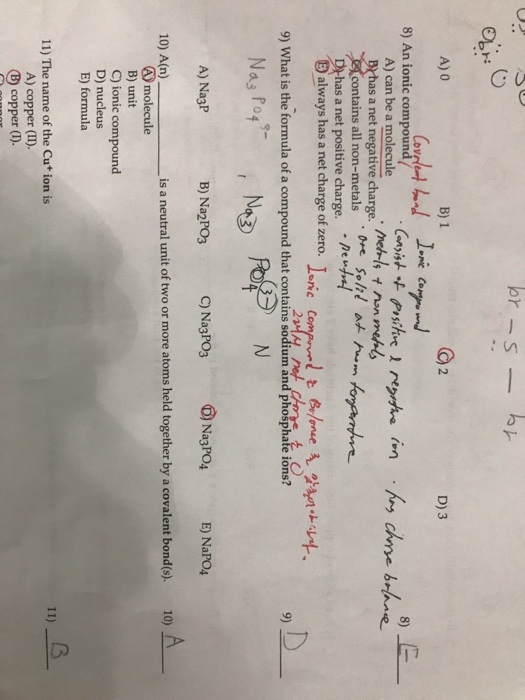 br - S - br
A) 0 B) 1 C) 2 D) 3
8) An ionic compound 8) E
Covalent bond Ionic compound
A) can be a molecule
· Consist of positive & negative ion · has charge balance
B) has a net negative charge. · metals + nonmetals
C) contains all non-metals · are solid at room temperature
D) has a net positive charge. · neutral
E) always has a net charge of zero.
Ionic compound
net charge
9) What is the formula of a compound that contains sodium and phosphate ions? 9) D
Na3 PO4 3- , Na3 PO4 (3-) N
A) Na3P B) Na2PO3 C) Na3PO3 D) Na3PO4 E) NaPO4
10) A(n) ______ is a neutral unit of two or more atoms held together by a covalent bond(s). 10) A
A) molecule
B) unit
C) ionic compound
D) nucleus
E) formula
11) The name of the Cu+ ion is 11) B
A) copper (II).
B) copper (I).